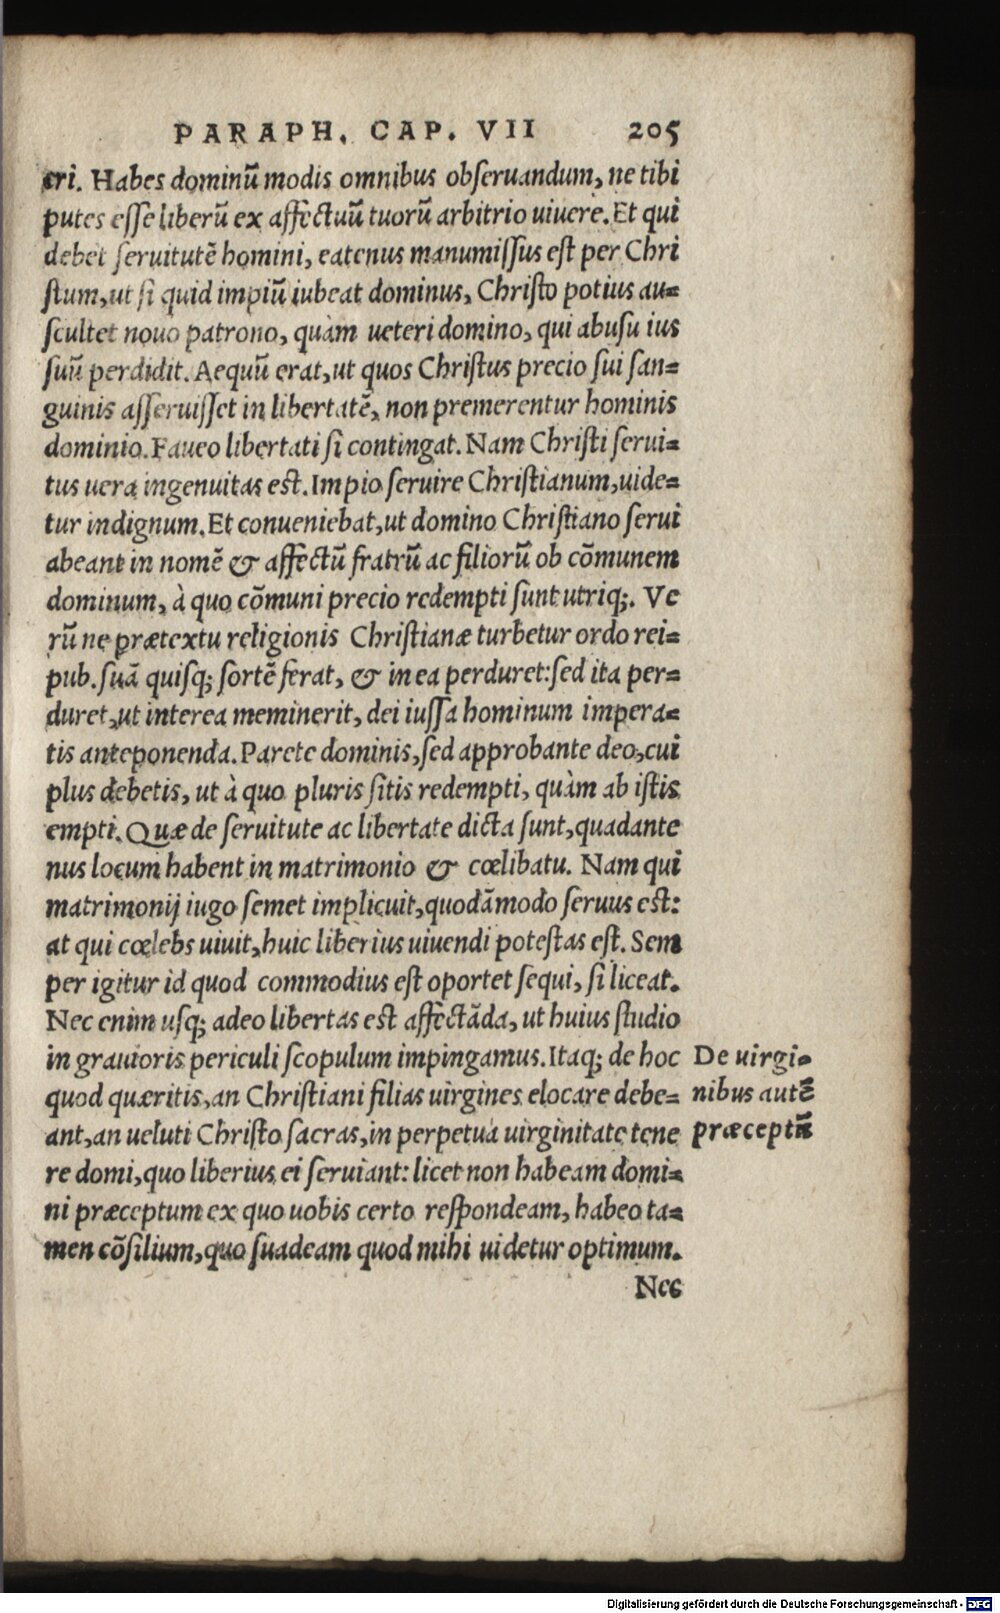 PARAPH. CAP. VII 205
eri. Habes dominũ modis omnibus obſeruandum, ne tibi
putes eſſe liberũ ex affectuũ tuorũ arbitrio uiuere. Et qui
debet ſeruitutẽ homini, eatenus manumiſſus eſt per Chri
ſtum, ut ſi quid impiũ iubeat dominus, Chriſto potius au=
ſcultet nouo patrono, quàm ueteri domino, qui abuſu ius
ſuũ perdidit. Aequũ erat, ut quos Chriſtus precio ſui ſan=
guinis aſſeruiſſet in libertatẽ, non premerentur hominis
dominio. Faueo libertati ſi contingat. Nam Chriſti ſerui=
tus uera ingenuitas eſt. Impio ſeruire Chriſtianum, uide=
tur indignum. Et conueniebat, ut domino Chriſtiano ſerui
abeant in nomẽ & affectũ fratrũ ac filiorũ ob cõmunem
dominum, à quo cõmuni precio redempti ſunt utriq;. Ve
rũ ne prætextu religionis Chriſtianæ turbetur ordo rei=
pub. ſuã quiſq; ſortẽ ferat, & in ea perduret: ſed ita per=
duret, ut interea meminerit, dei iuſſa hominum impera=
tis anteponenda. Parete dominis, ſed approbante deo, cui
plus debetis, ut à quo pluris ſitis redempti, quàm ab iſtis
empti. Quæ de ſeruitute ac libertate dicta ſunt, quadante
nus locum habent in matrimonio & cœlibatu. Nam qui
matrimonij iugo ſemet implicuit, quodãmodo ſeruus eſt:
at qui cœlebs uiuit, huic liberius uiuendi poteſtas eſt. Sem
per igitur id quod commodius eſt oportet ſequi, ſi liceat.
Nec enim uſq; adeo libertas eſt affectãda, ut huius ſtudio
in grauioris periculi ſcopulum impingamus. Itaq; de hoc
quod quæritis, an Chriſtiani filias uirgines elocare debe=
ant, an ueluti Chriſto ſacras, in perpetua uirginitate tene
re domi, quo liberius ei ſeruiant: licet non habeam domi=
ni præceptum ex quo uobis certo reſpondeam, habeo ta=
men cõſilium, quo ſuadeam quod mihi uidetur optimum.
Nec
De uirgi=
nibus autẽ
præceptũ
Digitalisierung gefördert durch die Deutsche Forschungsgemeinschaft - DFG